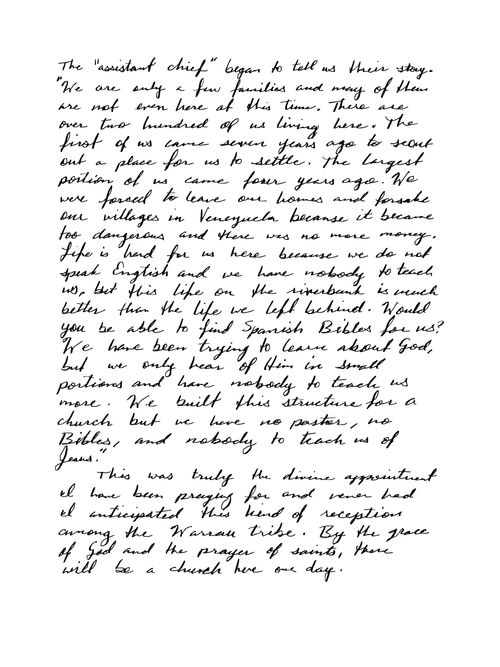 The "assistant chief" began to tell us their story.
"We are only a few families and many of them
are not even here at this time. There are
over two hundred of us living here. The
first of us came seven years ago to scout
out a place for us to settle. The largest
portion of us came four years ago. We
were forced to leave our homes and forsake
our villages in Venezuela because it became
too dangerous and there was no more money.
Life is hard for us here because we do not
speak English and we have nobody to teach
us, but this life on the riverbank is much
better than the life we left behind. Would
you be able to find Spanish Bibles for us?
We have been trying to learn about God,
but we only hear of Him in small
portions and have nobody to teach us
more. We built this structure for a
church but we have no pastor, no
Bibles, and nobody to teach us of
Jesus."
This was truly the divine appointment
I have been praying for and never had
I anticipated this kind of reception
among the Warrau tribe. By the grace
of God and the prayer of saints, there
will be a church here one day.